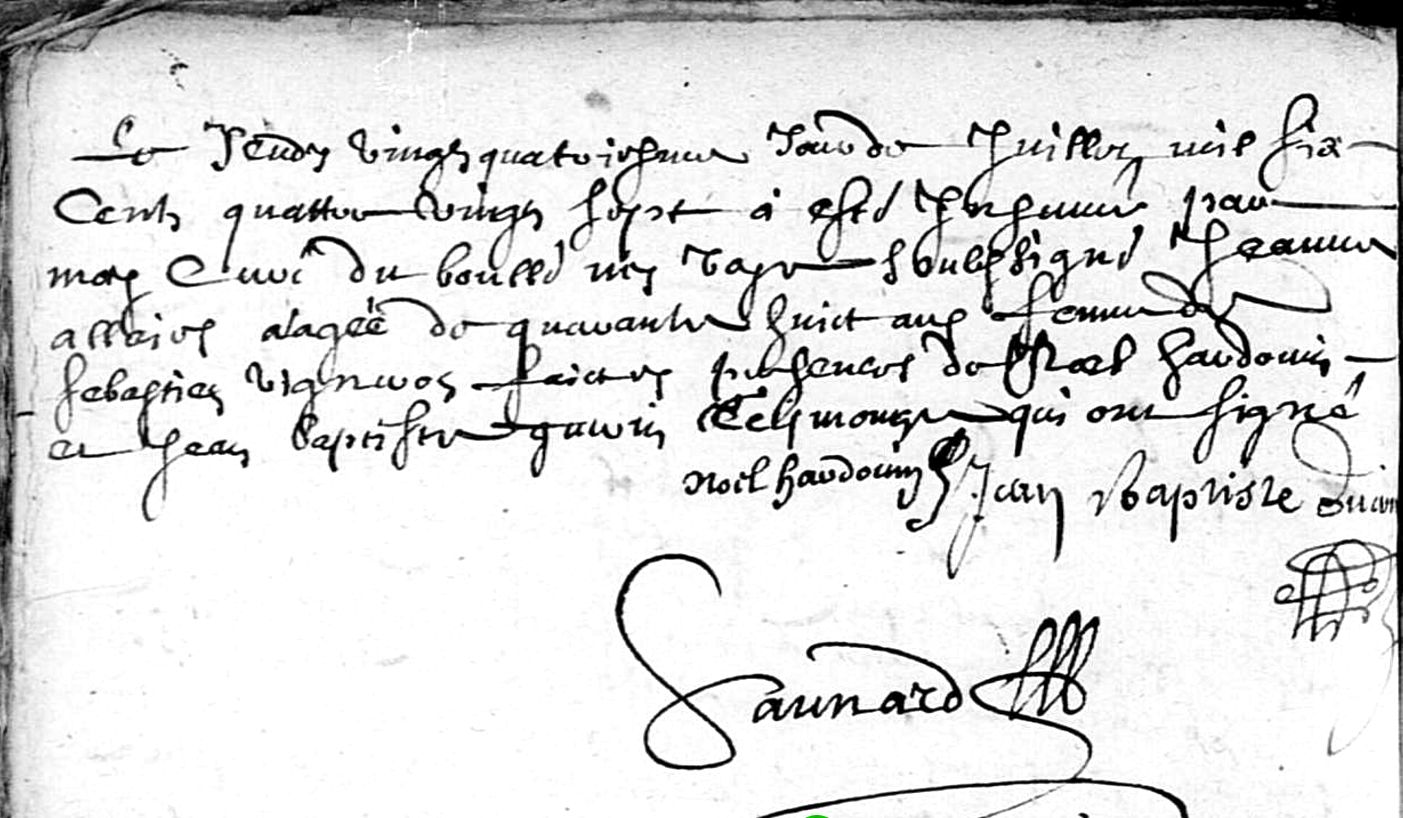 Le Jeudy vingt quatriesme Jour de Juillet mil six
Cents quattre vingt sept a esté Inhumée par
moy Curé du boullé soubsigné Jeanne
agée de quarante huict ans femme de
Sebastien Vigneron faict es presences de Noel hardouin
et Jean baptiste guerin tesmoings qui ont signé
noel hardouin Jean Baptiste
Saunard